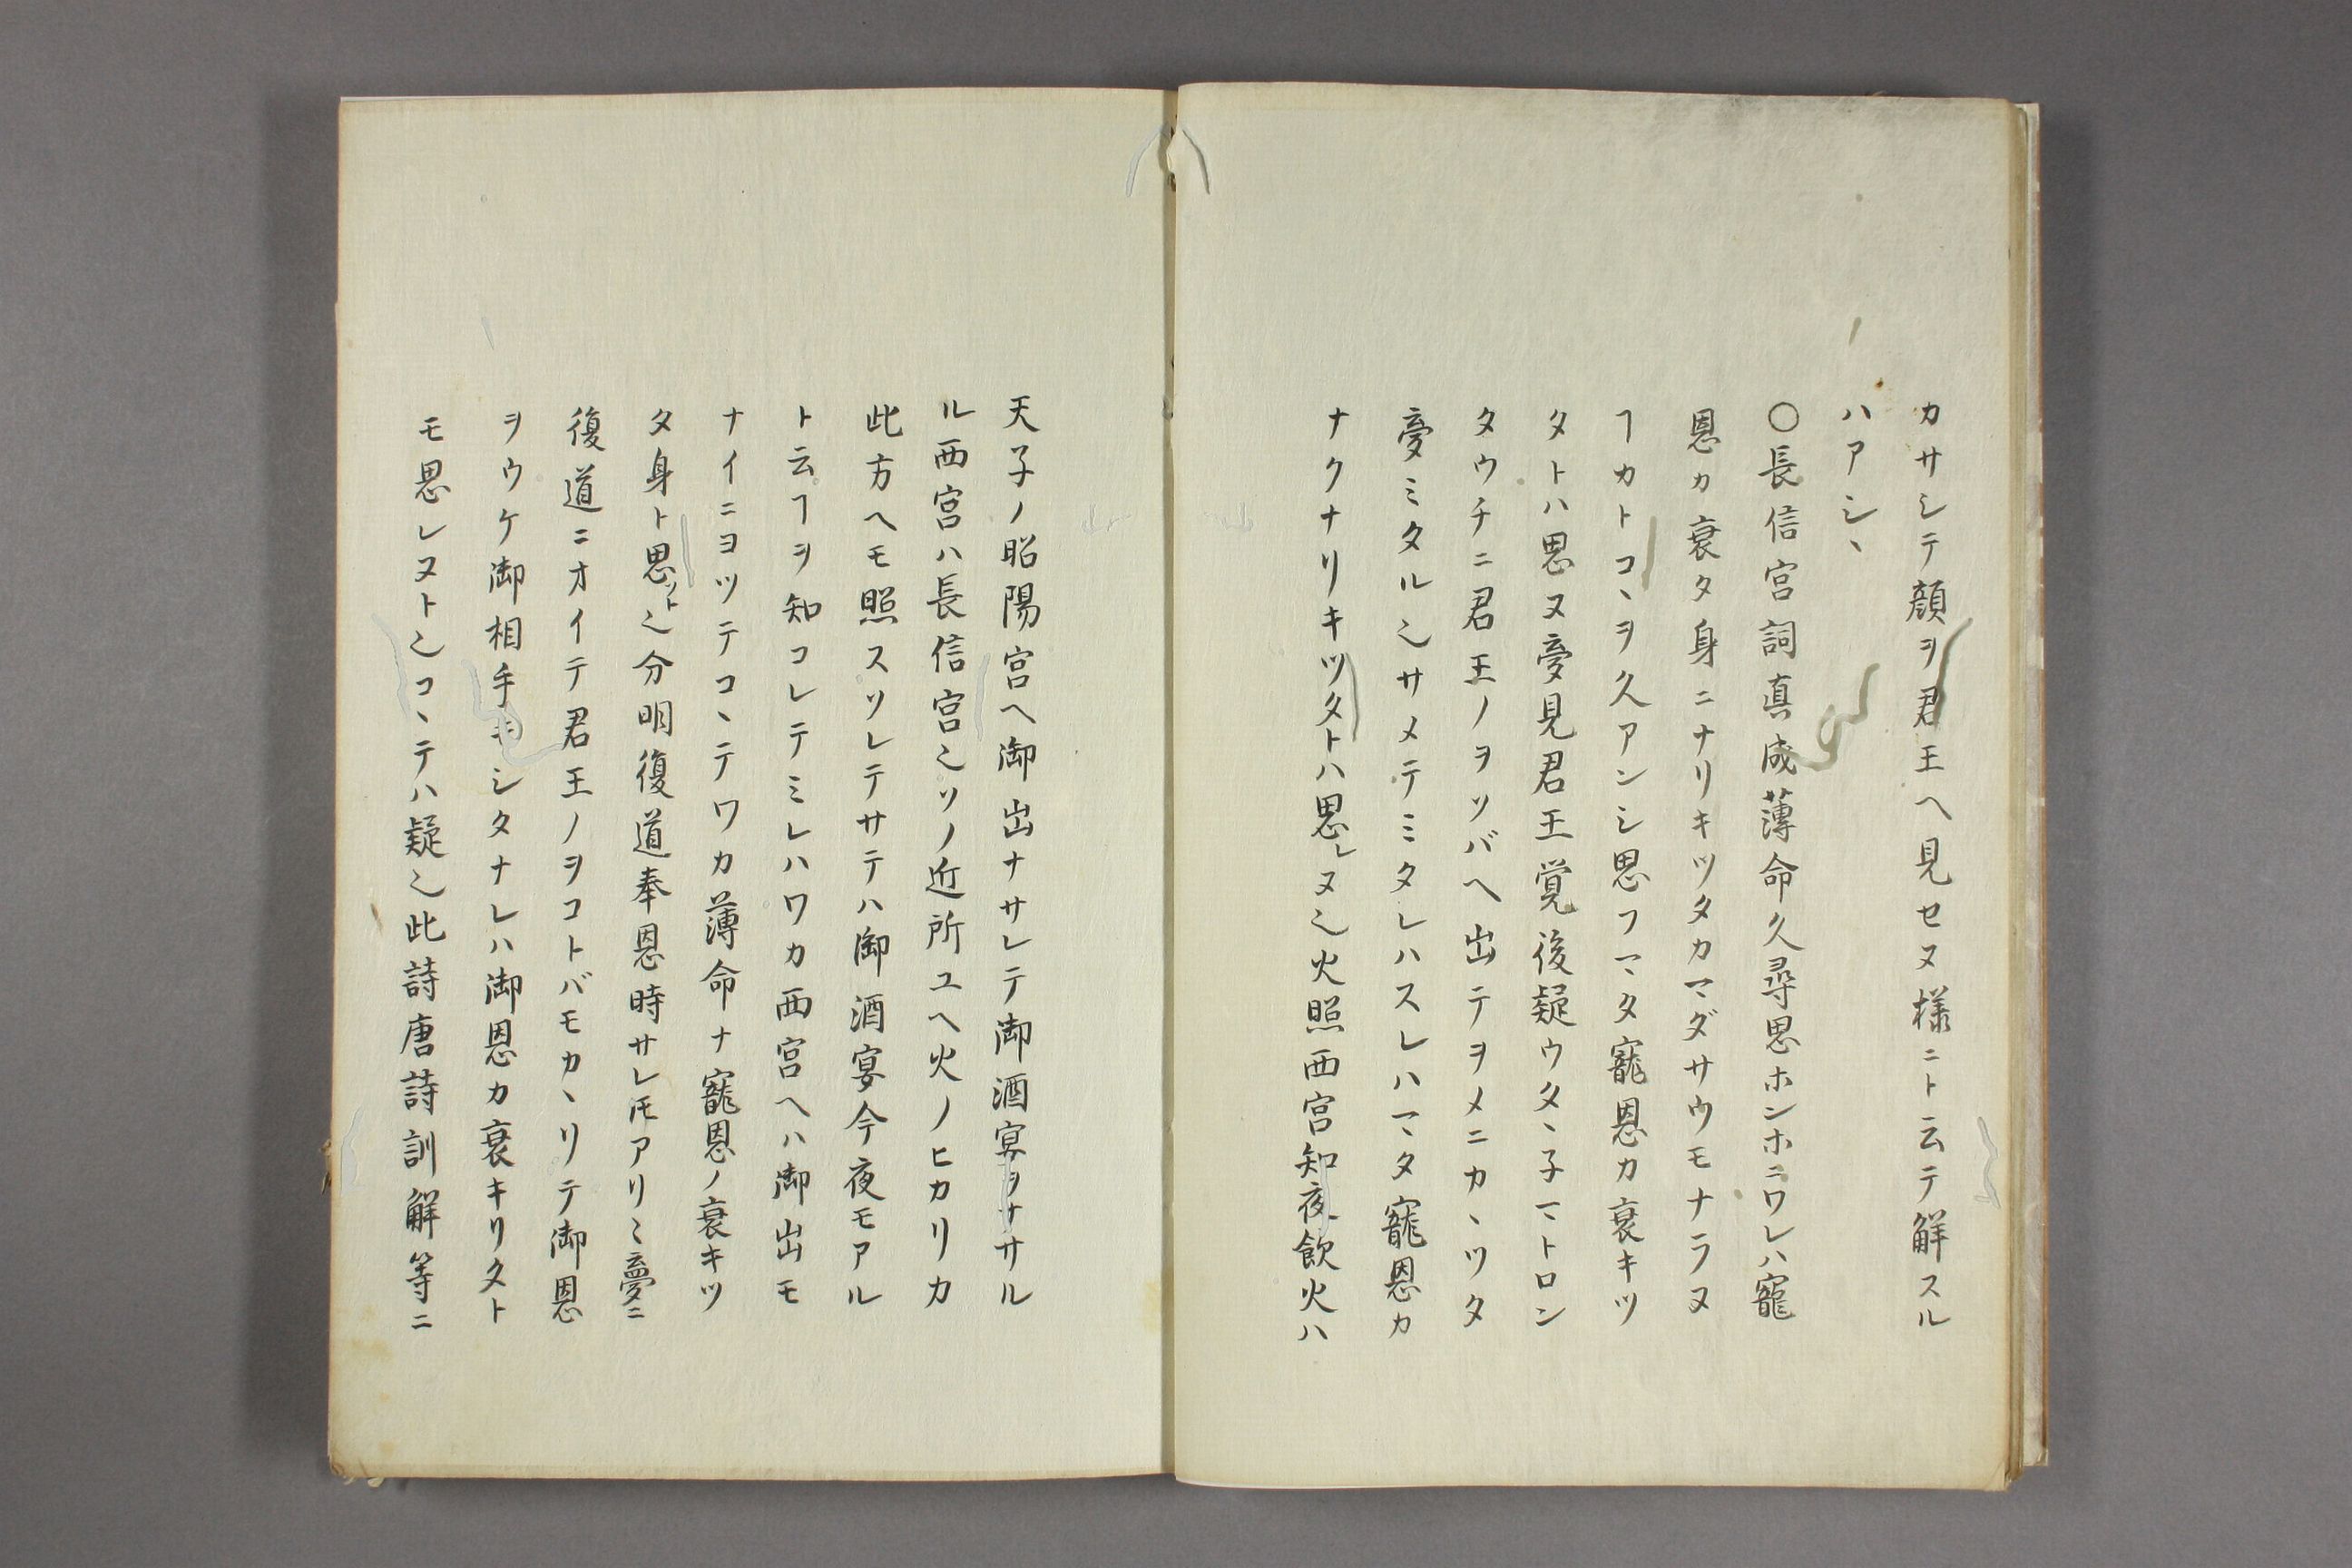 カサシテ顔ヲ君王ヘ見セヌ様ニト云テ解スル
ハアシヽ
〇長信宮詞真成薄命久尋思ホンホニワレハ寵
恩カ衰タ身ニナリキツタカマダサウモナラヌ
ヿカトコヽヲ久アンシ思フマタ寵恩カ衰キツ
タトハ思ヌ夢見君王覚後疑ウタヽ子マトロン
タウチニ君王ノヲソバヘ出テヲメニカヽツタ
夢ミタル乄サメテミタレハスレハマタ寵恩カ
ナクナリキツタトハ思レヌ乄火照西宮知夜飲火ハ
天子ノ昭陽宮ヘ御出ナサレテ御酒宴ヲナサル
ル西宮ハ長信宮乄ソノ近所ユヘ火ノヒカリカ
此方ヘモ照スソレテサテハ御酒宴今夜モアル
ト云ヿヲ知コレテミレハワカ西宮ヘハ御出モ
ナイニヨツテコヽテワカ薄命ナ寵恩ノ衰キツ
タ身ト思ット乄分明復道奉恩時サレ𪜈アリ〻夢ニ
復道ニオイテ君王ノヲコトバモカヽリテ御恩
ヲウケ御相手モシタナレハ御恩カ衰キリタト
モ思レヌト乄コヽテハ疑乄此詩唐詩訓解等ニ